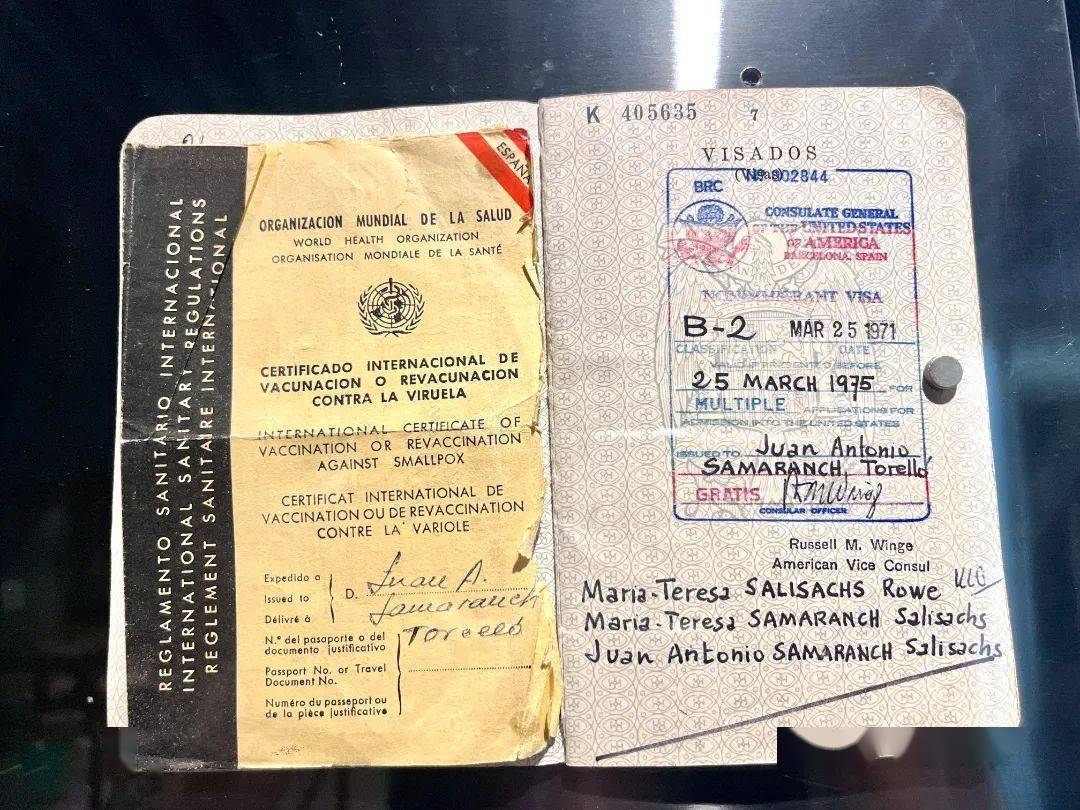 REGLAMENTO SANITARIO INTERNACIONAL
INTERNATIONAL SANITARY REGULATIONS
REGLEMENT SANITAIRE INTERNATIONAL
ESPAÑA
ORGANIZACION MUNDIAL DE LA SALUD
WORLD HEALTH ORGANIZATION
ORGANISATION MONDIALE DE LA SANTÉ
CERTIFICADO INTERNACIONAL DE
VACUNACION O REVACUNACION
CONTRA LA VIRUELA
INTERNATIONAL CERTIFICATE OF
VACCINATION OR REVACCINATION
AGAINST SMALLPOX
CERTIFICAT INTERNATIONAL DE
VACCINATION OU DE REVACCINATION
CONTRE LA VARIOLE
Expedido a
Issued to
Délivré à
D. Juan A.
Samaranch
Torelló
N.º del pasaporte o del
documento justificativo
Passport No. or Travel
Document No.
Numéro du passeport ou
de la pièce justificative
K 405635 7
VISADOS
(Visas)
BRC Nº 802844
CONSULATE GENERAL
OF THE UNITED STATES
OF AMERICA
BARCELONA, SPAIN
NONIMMIGRANT VISA
B-2 MAR 25 1971
CLASSIFICATION DATE
VALID IF PRESENTED BEFORE
25 MARCH 1975 FOR
MULTIPLE APPLICATIONS FOR
ADMISSION INTO THE UNITED STATES
ISSUED TO Juan Antonio
SAMARANCH, Torelló
GRATIS
CONSULAR OFFICER
Russell M. Winge
American Vice Consul
Maria-Teresa SALISACHS Rowe
Maria-Teresa SAMARANCH Salisachs
Juan Antonio SAMARANCH Salisachs